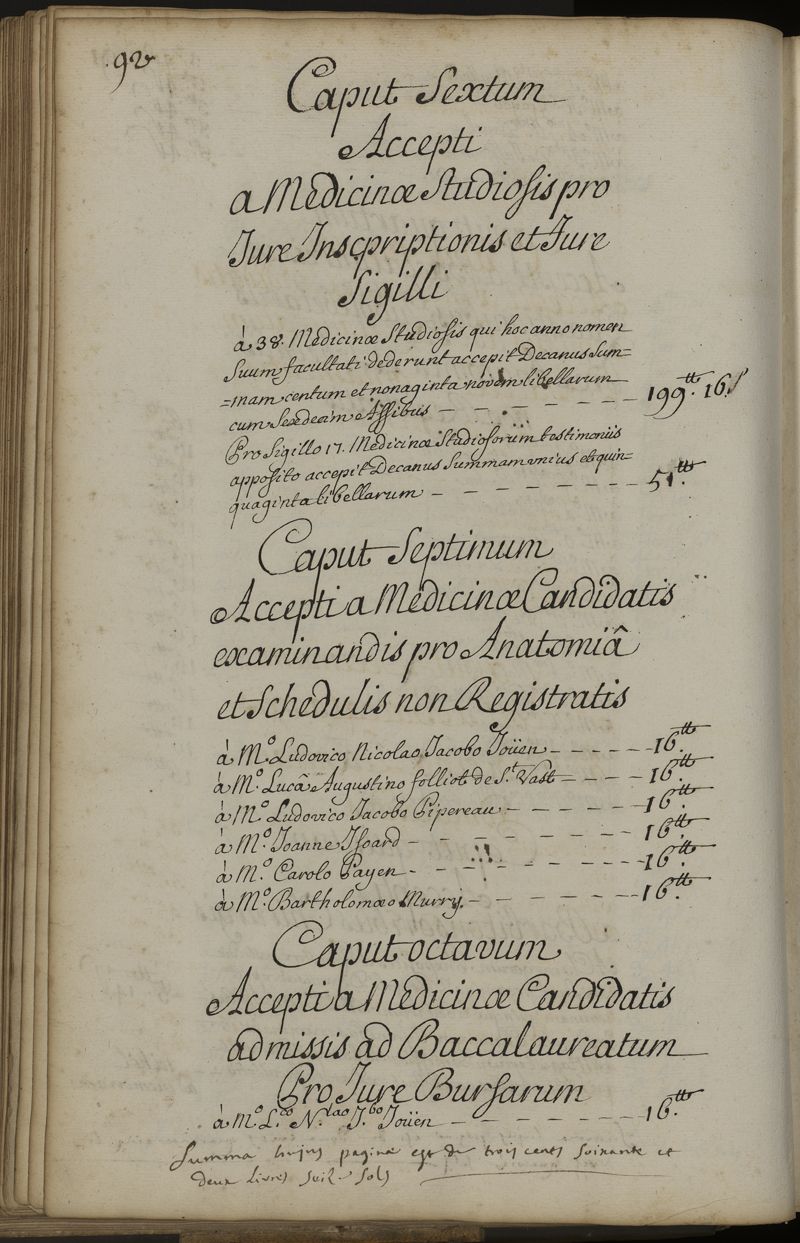 92
Caput Sextum
Accepti
a Medicinæ Studiosis pro
Jure Inscpriptionis et Jure
Sigilli
à 38. Medicinæ Studiosis qui hoc anno nomen
Suum facultati dederunt accepit Decanus Sum=
=mam centum et nonaginta novem libellarum
cum Sexdecim Assibus — — — — — — — 199.tt 16.s
Pro Sigillo 17. Medicinæ Studiosorum testimoniis
apposito accepit Decanus Summam unius et quin=
quaginta libellarum — — — — — — — 51.tt
Caput Septimum
Accepti a Medicinæ Candidatis
examinandis pro Anatomiâ
et Schedulis non Registratis
à M.o Ludovico Nicolao Jacobo Joüen — — — — — 16.tt
à M.o Lucâ Augustino folliot de S.t Vast — — — — 16.tt
à M.o Ludovico Jacobo Pipereau — — — — — 16.tt
à M.o Joanne Isoard — — — — — — — — 16.tt
à M.o Carolo Payen — — — — — — — — 16.tt
à M.o Bartholomæo Murry — — — — — — 16.tt
Caput octavum
Accepti a Medicinæ Candidatis
admissis ad Baccalaureatum
Pro Jure Bursarum
à M.o L.co N.lao J.bo Joüen — — — — — — — 16.tt
Summa hujus paginæ est de trois cents soixante et
deux livres seize sols